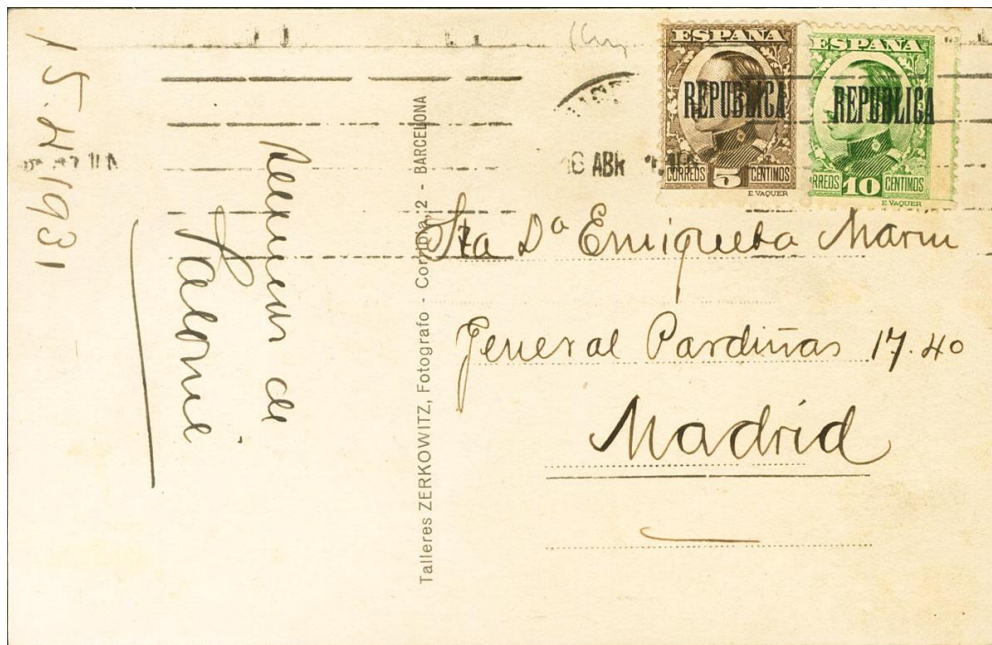 15-IV-1931
Recuerdos de
Salomé
Talleres ZERKOWITZ, Fotografo - 2 - BARCELONA
ESPAÑA
REPUBLICA
CORREOS 5 CENTIMOS
E. VAQUER
ESPAÑA
REPUBLICA
RREOS 10 CENTIMOS
E. VAQUER
ABR
Sta Dª Enriqueta Marin
General Pardiñas 17.40
Madrid